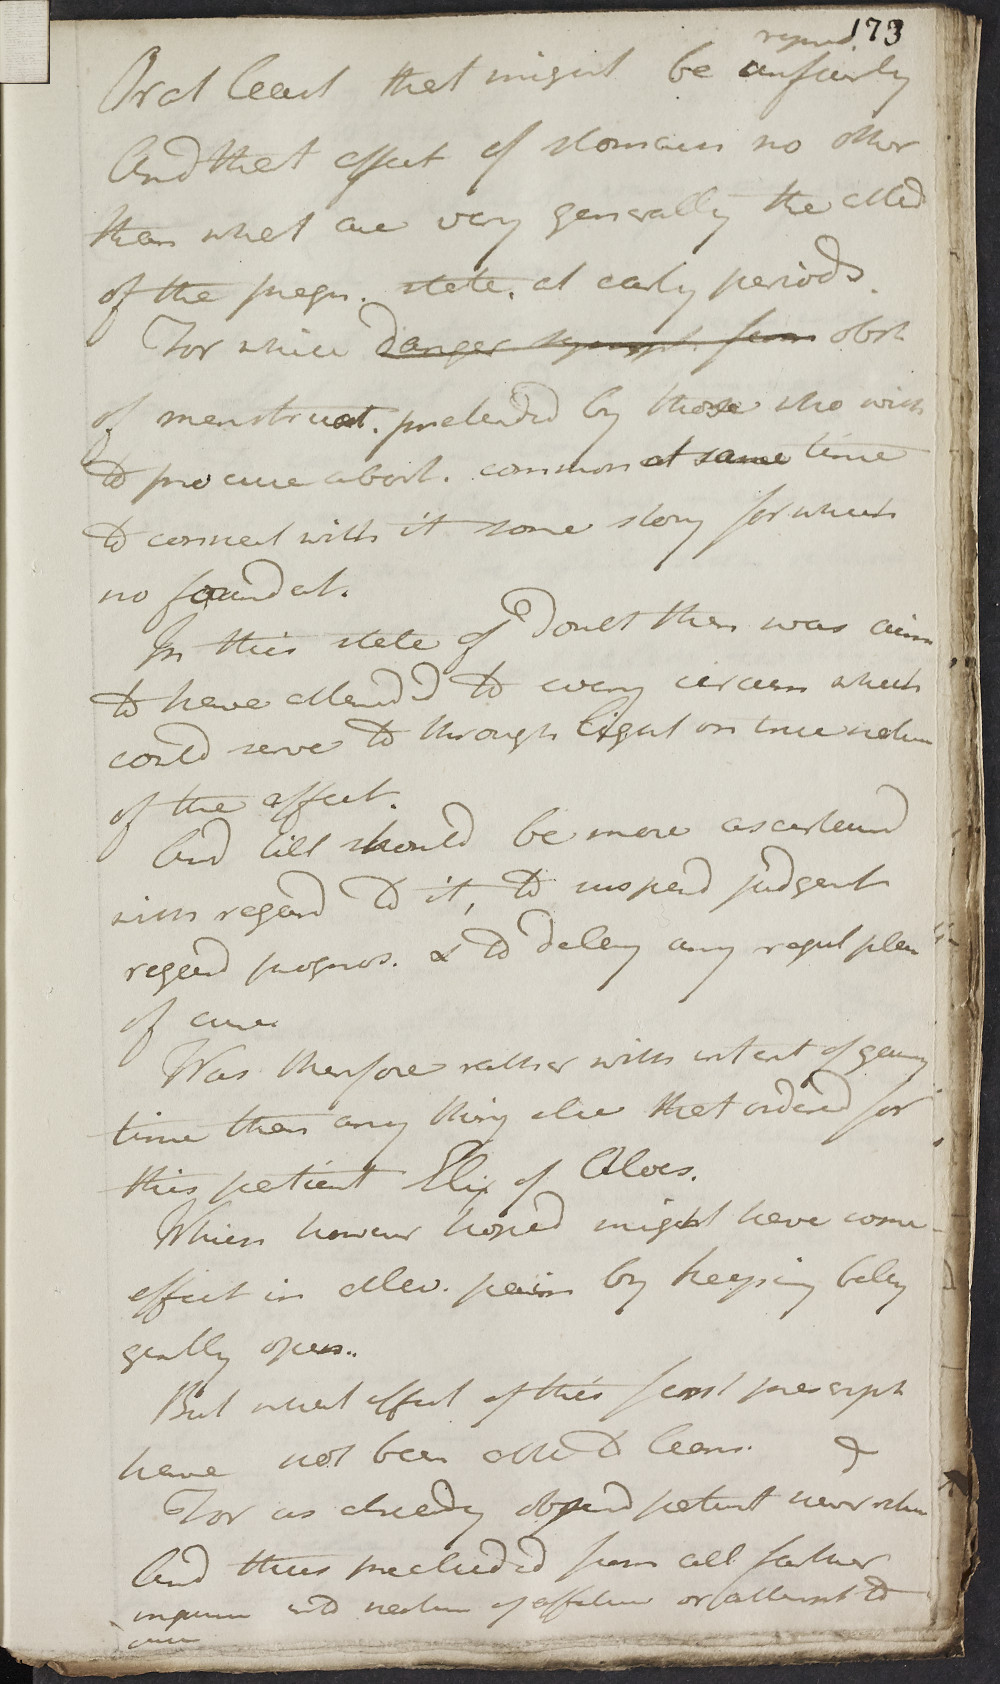 173
Or at least that might be unfairly
And that affect of stomach no other
than what are very generally the attend
of the pregn. state. at early periods.
For while danger from obst.
of menstruat. pretended by those who wish
to procure abort. common at same time
to connect with it some story for which
no foundat.
In this state of Doubt then was aim
to have attended to every circum which
could serve to through light on true natur
of the affect.
And till should be more ascertaind
with regard to it, to suspend judgent
regard prognos. & to delay any regul plan
of cure
Was therefore rather with intent of gaing
time than any thing else that orderd for
this patient Elix of Aloes.
Which however hoped might have some
effect in allev. pain by keeping bely
gently open..
But what effect of this first prescript
have not been able to learn.
For as already observd patient never retur
And thus precluded from all farther
inquiries into nature of affection or attempt to
cure